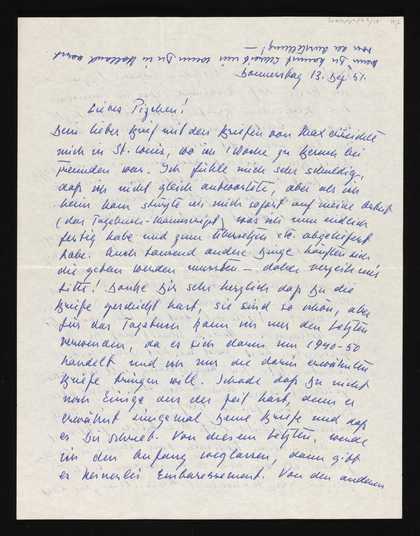 wenn Du kommst [?] mir wenn Du in Holland warst
von der Ausstellung! —
Donnerstag 13. Dez 51.
Liebes Pizchen!
Dein lieber Brief mit den Briefen von Max erreichte
mich in St. Louis, wo ich 1 Woche zu Besuch bei
Freunden war. Ich fühle mich sehr schuldig,
daß ich nicht gleich antwortete, aber als ich
heim kam stürzte ich mich sofort auf meine Arbeit
(das Tagebuch-Manuscript) was ich nun endlich
fertig habe und zum Übersetzen etc. abgeliefert
habe. Auch tausend andere Dinge häuften sich
die getan werden mussten — daher vergieb mir
bitte! Danke Dir sehr herzlich daß Du die
Briefe geschickt hast, sie sind so schön, aber
für das Tagebuch kann ich nur den letzten
verwenden, da es sich darin um 1940-50
handelt und ich nur die darin erwähnten
Briefe bringen will. Schade daß Du nicht
noch Einige aus der Zeit hast, denn er
erwähnt einigemal Deine Briefe und daß
er Dir schrieb. Von diesem Letzten, werde
ich den Anfang weglassen, dann gibt
es keinerlei Embarressement. Von den anderen